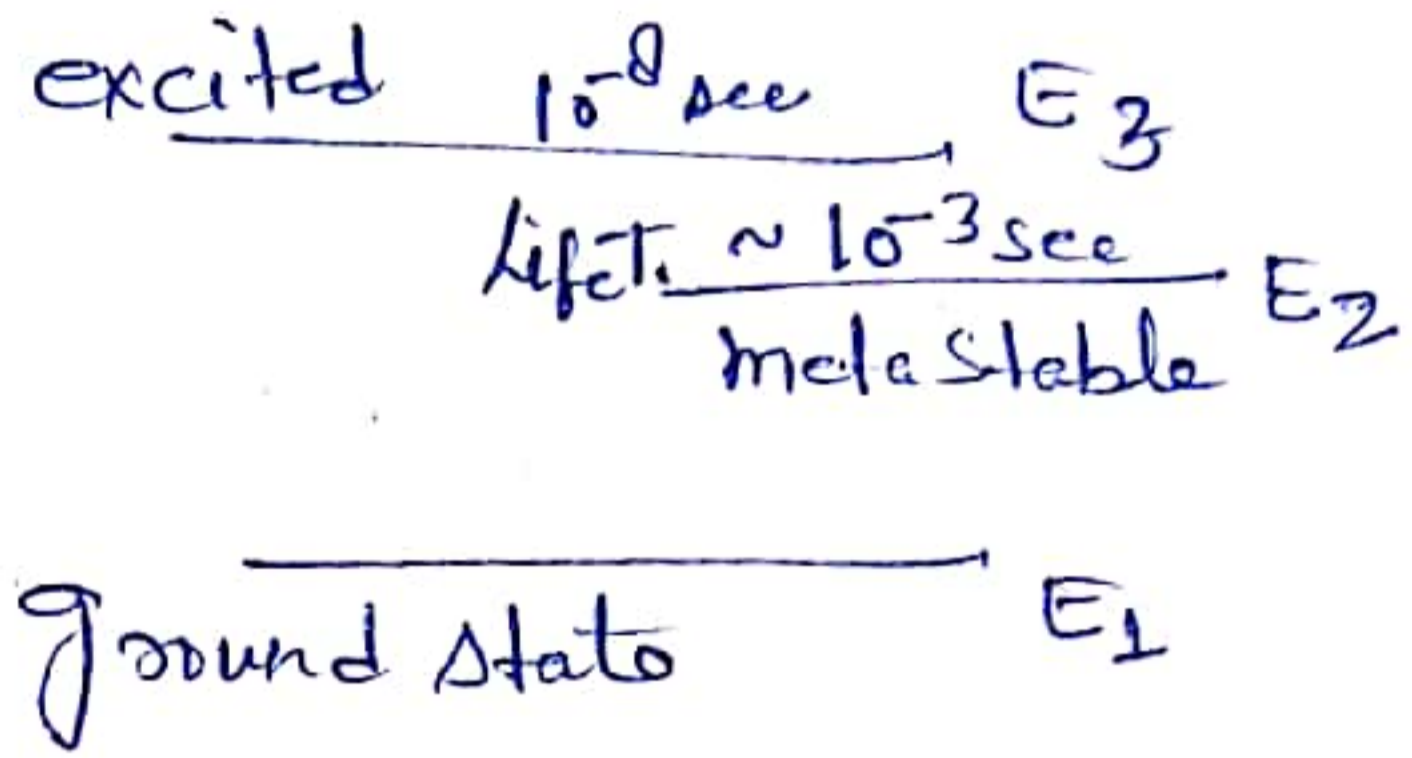 excited 10⁻⁸ sec E₃
LifeT. ~ 10⁻³ sec E₂
metastable
E₁
ground state